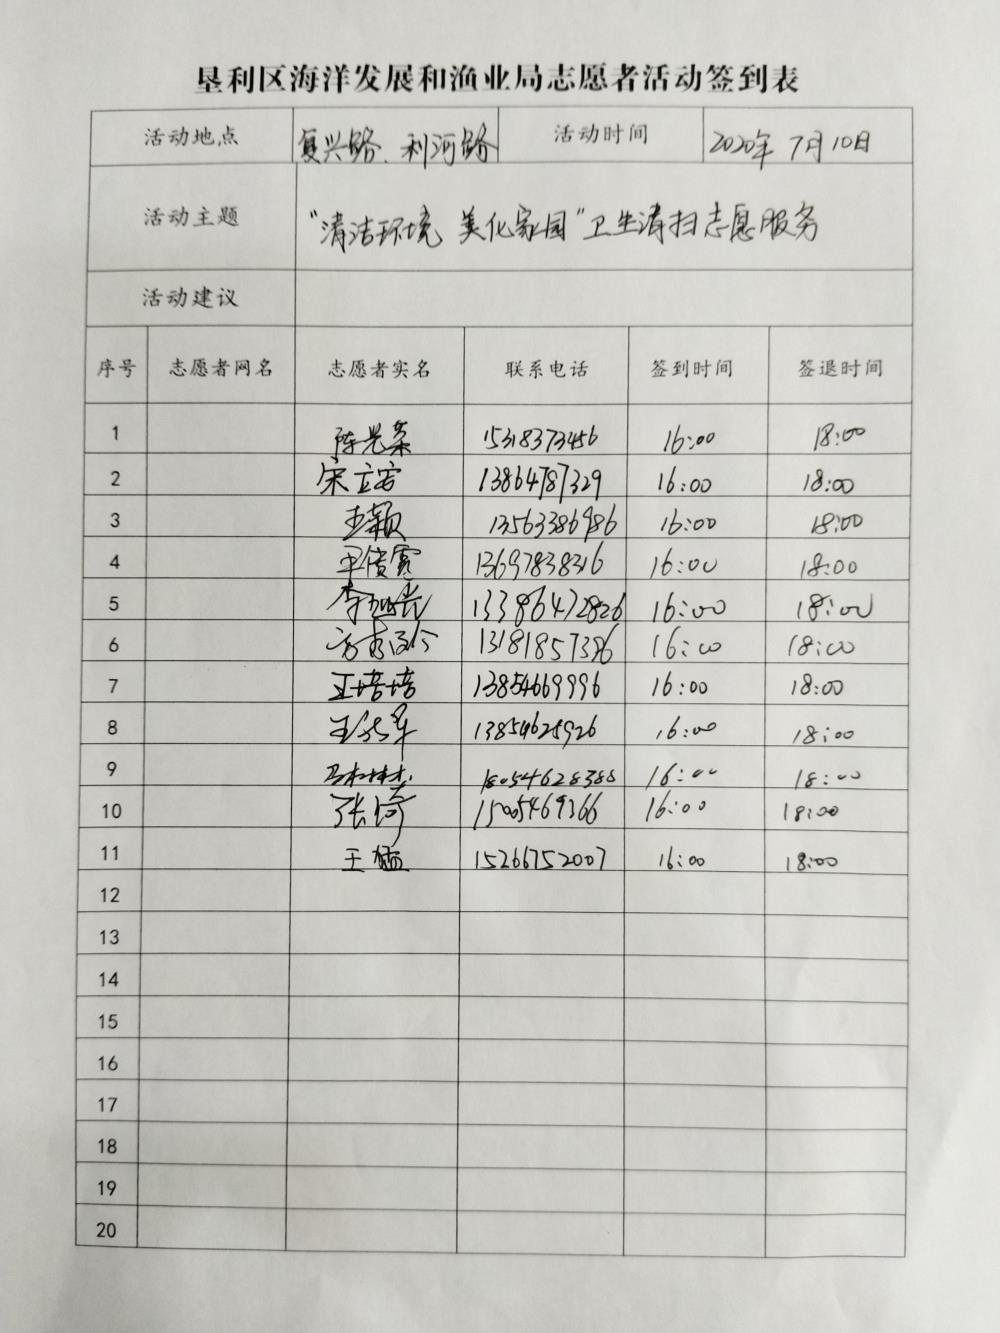 垦利区海洋发展和渔业局志愿者活动签到表
活动地点 复兴路、利河路 活动时间 2020年7月10日
活动主题 “清洁环境 美化家园”卫生清扫志愿服务
活动建议
序号 志愿者网名 志愿者实名 联系电话 签到时间 签退时间
1 陈光荣 15318373456 16:00 18:00
2 宋立安 13864787329 16:00 18:00
3 王颖 13563386986 16:00 18:00
4 13697838316 16:00 18:00
5 13386472826 16:00 18:00
6 13181857336 16:00 18:00
7 王培培 13854669996 16:00 18:00
8 13854625926 16:00 18:00
9 18054628388 16:00 18:00
10 张倚 15005469366 16:00 18:00
11 王猛 15266752007 16:00 18:00
12
13
14
15
16
17
18
19
20